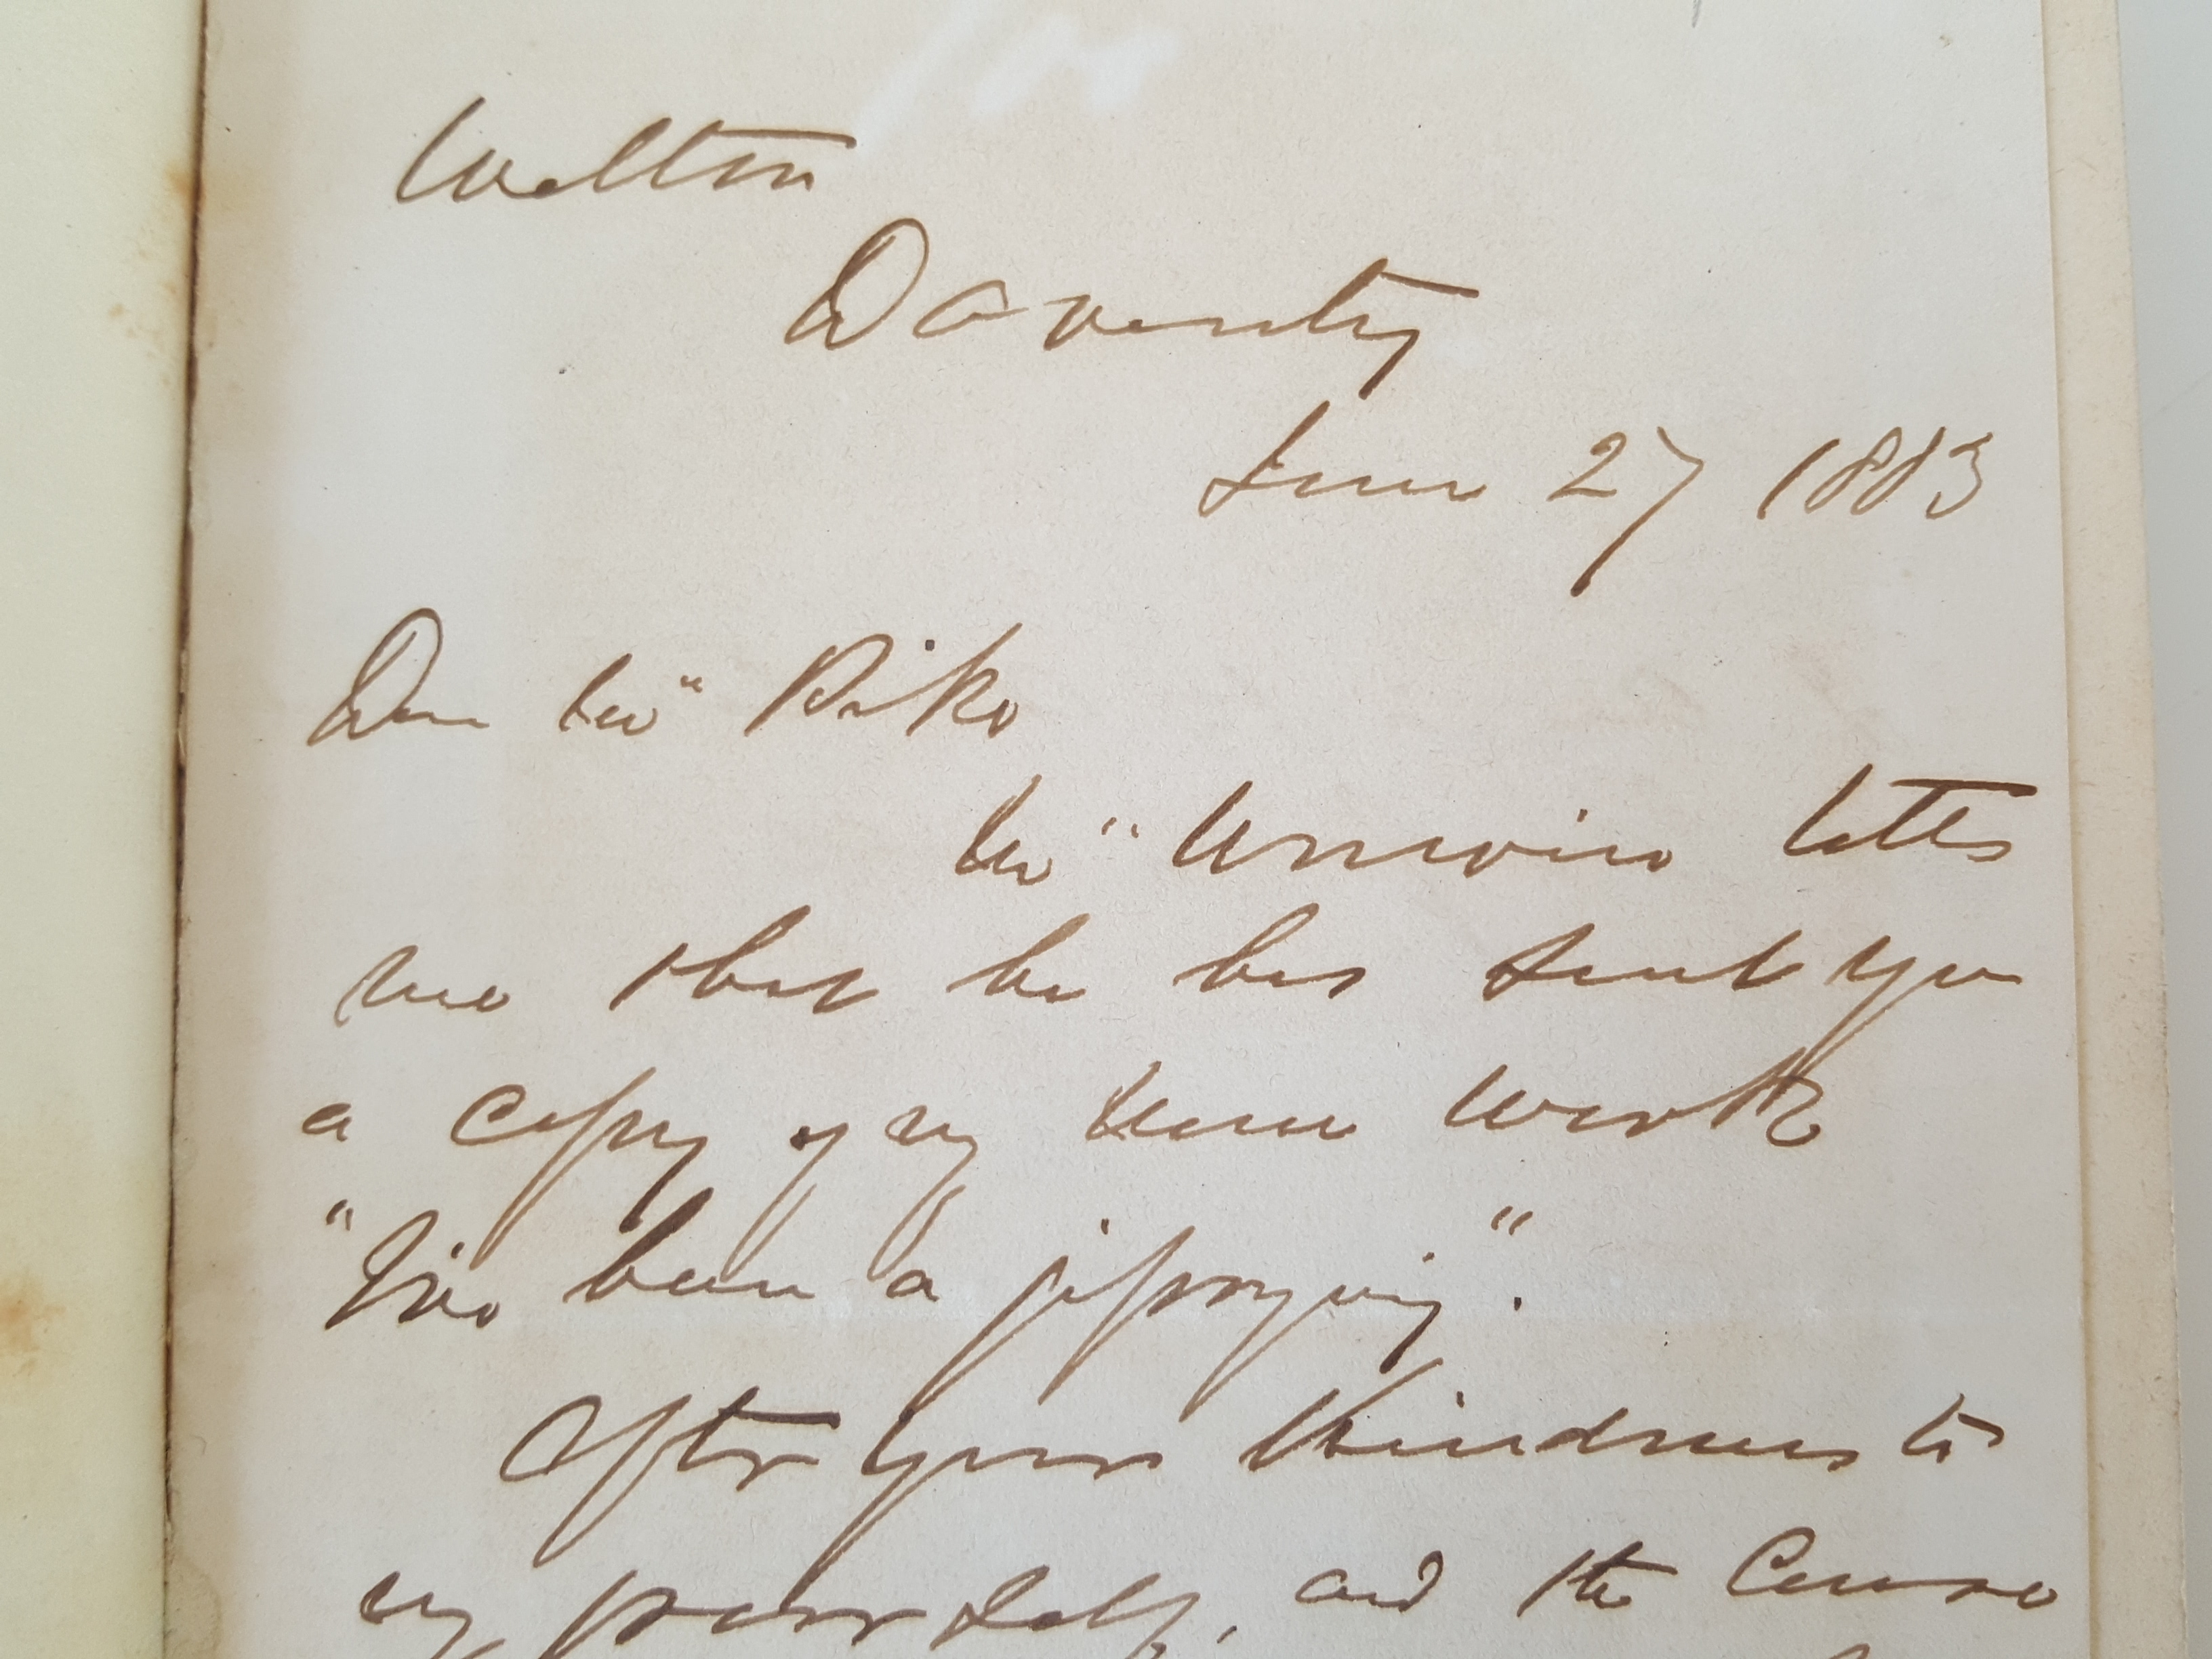 Welton
Daventry
June 27 1883
Dear Mr Pike
Mr Unwin tells
me that he has sent you
a copy of my new work
"I've been a gipsying".
After your kindness to
my poor self, and the Cause